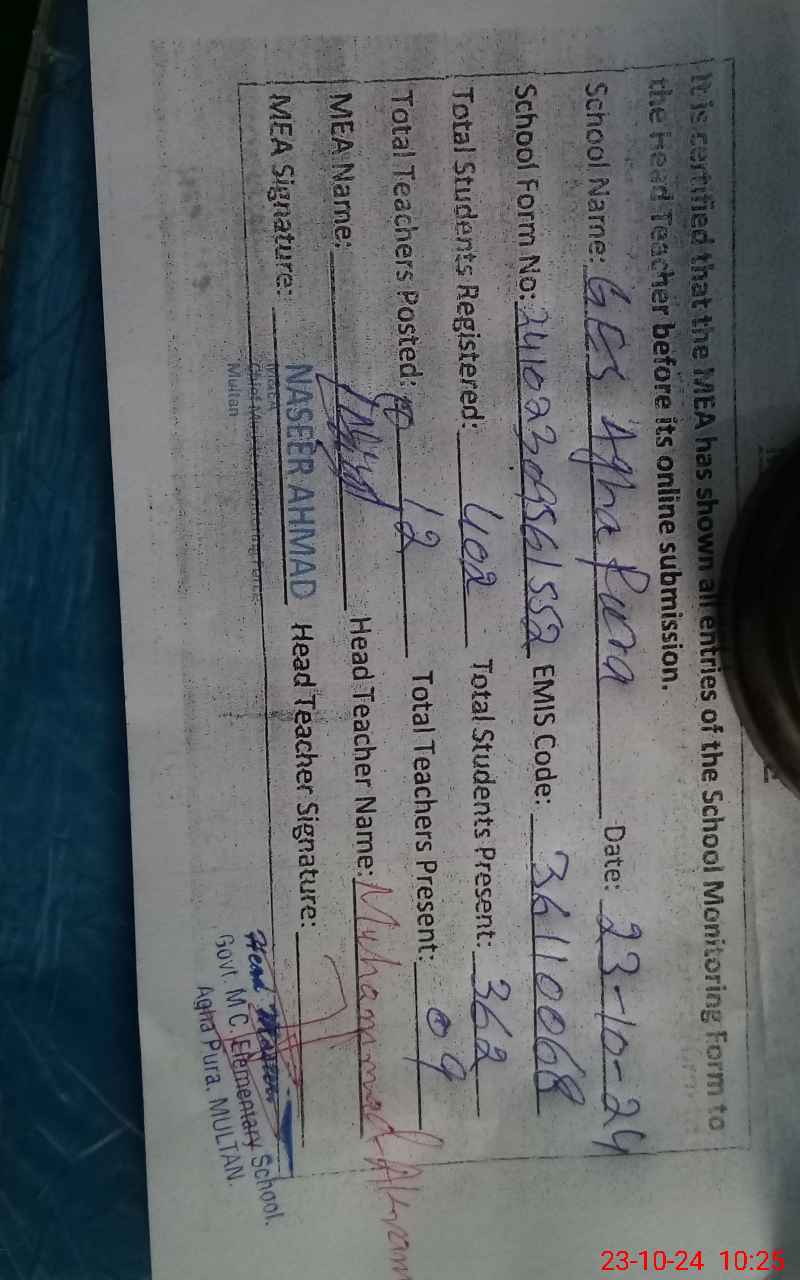 It is certified that the MEA has shown all entries of the School Monitoring Form to
the Head Teacher before its online submission.
School Name: GES Agha Pura Date: 23-10-24
School Form No: 24102309561552 EMIS Code: 36110068
Total Students Registered: 402 Total Students Present: 362
Total Teachers Posted: 12 Total Teachers Present: 09
MEA Name: Head Teacher Name: Muhammad Akram
MEA Signature: NASEER AHMAD Head Teacher Signature:
Multan
Head Master
Govt. M.C. Elementary School.
Agha Pura, MULTAN.
23-10-24 10:25